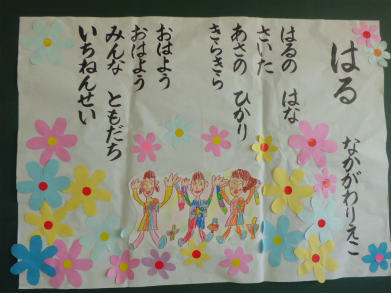 はる
なかがわりえこ
はるの はな
さいた
あさの ひかり
きらきら
おはよう
おはよう
みんな ともだち
いちねんせい